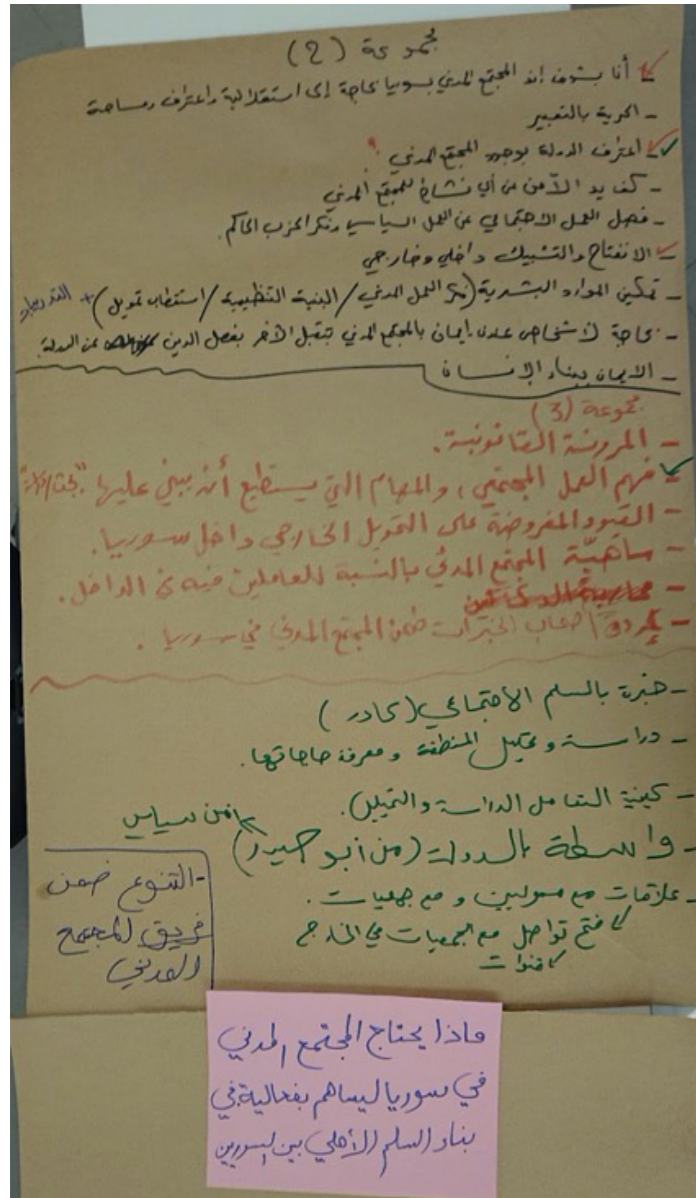 مجموعة (2)
- أنا بشوف إنه المجتمع المدني بسوريا بحاجة إلى استقلالية واعتراف ومساحة
- الحرية بالتعبير
- اعتراف الدولة بوجود المجتمع المدني
- كف يد الأمن عن أي نشاط للمجتمع المدني
- فصل العمل الاجتماعي عن العمل السياسي وفكر الحزب الحاكم.
- الانفتاح والتشبيك داخلي وخارجي
- تمكين الموارد البشرية (العمل المدني / البنية التنظيمية / استقطاب تمويل) +
- بحاجة لأشخاص عندن إيمان بالمجتمع المدني تتقبل الآخر بفصل الدين عن الدولة.
- الايمان ببناء الإنسان
مجموعة (3)
- المرونة القانونية.
- فهم العمل المجتمعي، والمهام التي يستطيع أن يبني عليها
- القيود المفروضة على التمويل الخارجي داخل سوريا.
- ماهيّة المجتمع المدني بالنسبة للعاملين فيه في الداخل.
- أصحاب الخبرات ضمن المجتمع المدني في سوريا.
- خبرة بالسلم الاجتماعي (كادر)
- دراسة وتحليل المنطقة ومعرفة حاجاتها.
- كيفية التعامل الدراسة والتحليل).
- واسطة بالدولة (من أبو حيدر) أمن سياسي
- علاقات مع مسولين و مع جمعيات.
فتح تواصل مع الجمعيات في الخارج
كقنوات
- التنوع ضمن
فريق المجتمع
المدني
ماذا يحتاج المجتمع المدني
في سوريا ليساهم بفعالية في
بناء السلم الأهلي بين السوريين